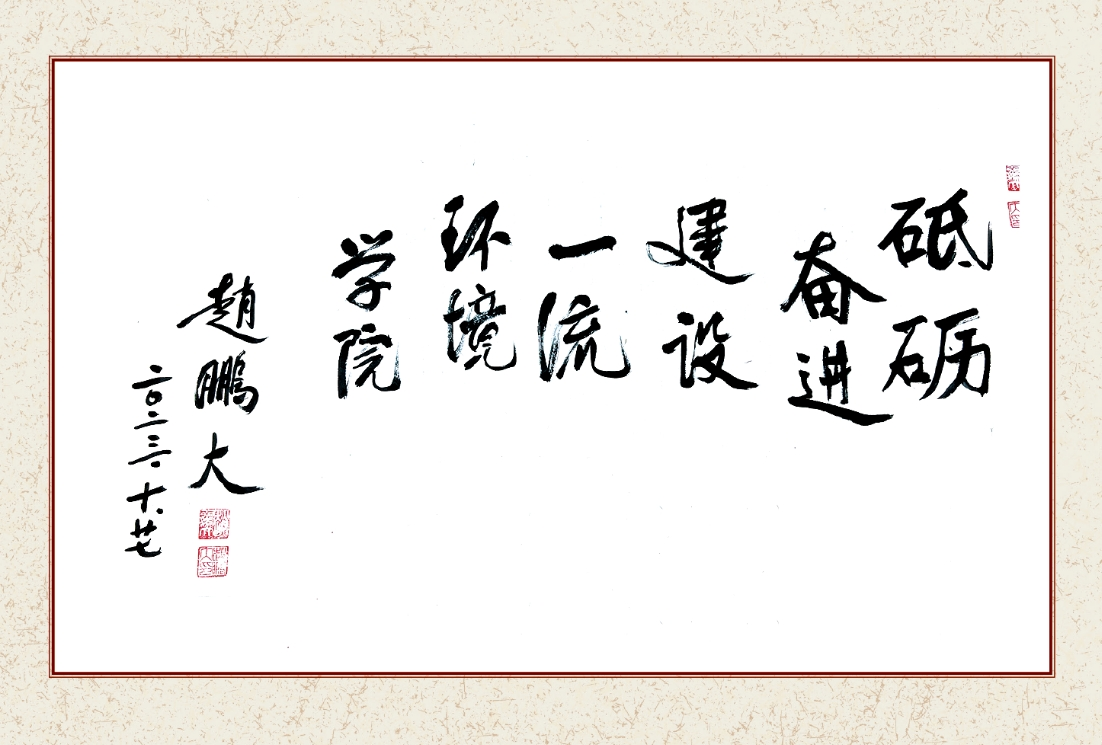 砥砺
奋进
建设
一流
环境
学院
趙鵬大
二〇二三.十.廿七